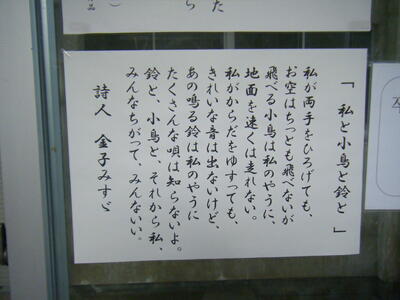 「私と小鳥と鈴と」
私が両手をひろげても、
お空はちっとも飛べないが
飛べる小鳥は私のやうに、
地面を速くは走れない。
私がからだをゆすっても、
きれいな音は出ないけど、
あの鳴る鈴は私のやうに
たくさんな唄は知らないよ。
鈴と、小鳥と、それから私、
みんなちがって、みんないい。
詩人 金子みすゞ
た
ら